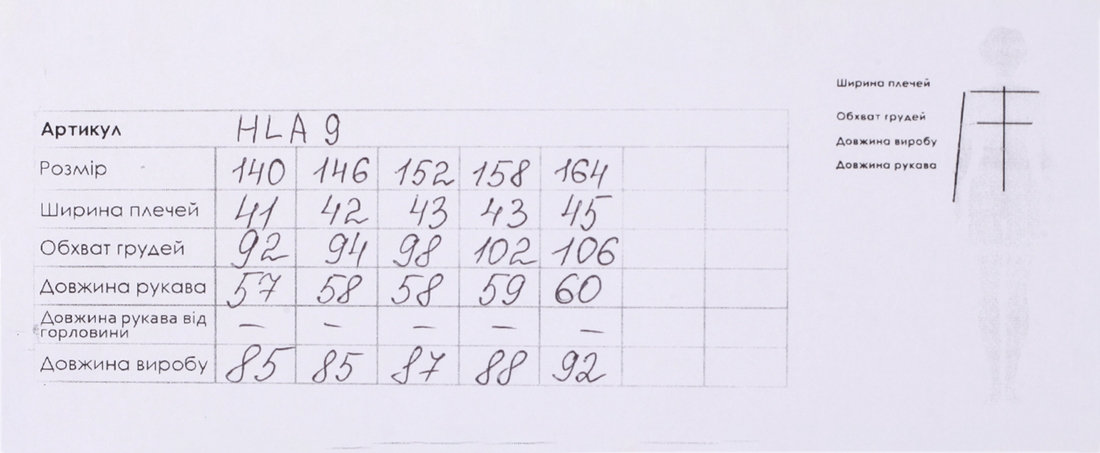 Артикул HLA 9
Розмір 140 146 152 158 164
Ширина плечей 41 42 43 43 45
Обхват грудей 92 94 98 102 106
Довжина рукава 57 58 58 59 60
Довжина рукава від
горловини – – – – –
Довжина виробу 85 85 87 88 92
Ширина плечей
Обхват грудей
Довжина виробу
Довжина рукава